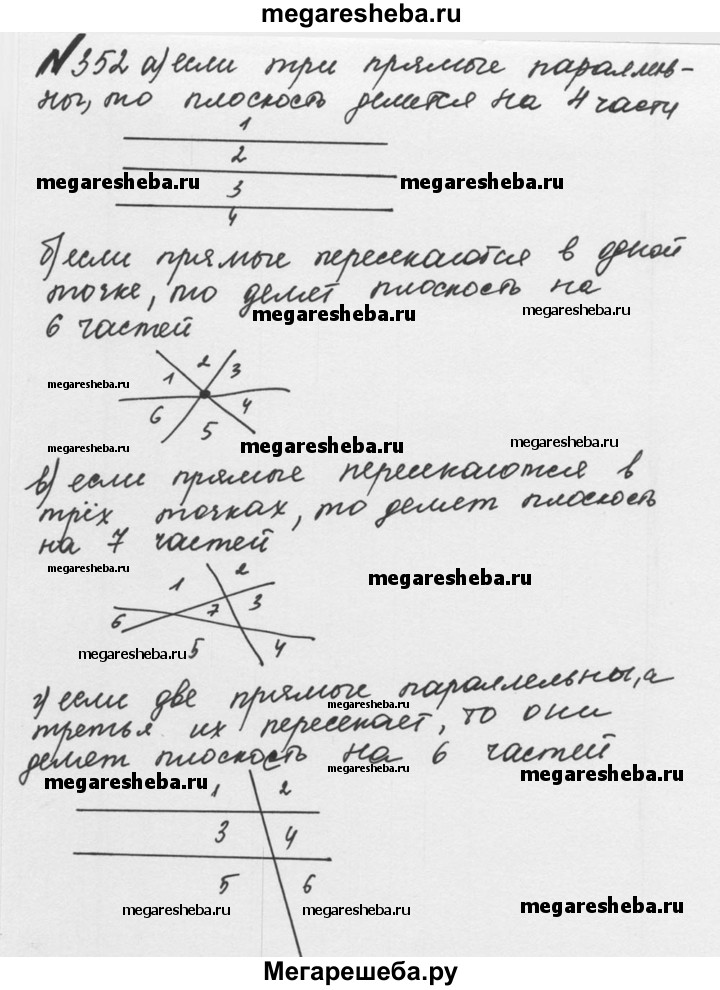 megaresheba.ru
№352 а) если три прямые параллель-
ны, то плоскость делится на 4 части
1
2
megaresheba.ru megaresheba.ru
3
4
б) если прямые пересекаются в одной
точке, то делят плоскость на
megaresheba.ru megaresheba.ru
6 частей
1 2 3
megaresheba.ru
6 5 4
megaresheba.ru megaresheba.ru
в) если прямые пересекаются в
трёх точках, то делят плоскость
на 7 частей
megaresheba.ru megaresheba.ru
1 2
6 7 3
megaresheba.ru 5 4
г) если две прямые параллельны, а
megaresheba.ru
третья их пересекает, то они
делят плоскость на 6 частей
megaresheba.ru megaresheba.ru megaresheba.ru
1 2
3 4
5 6
megaresheba.ru megaresheba.ru megaresheba.ru
Мегарешеба.ру